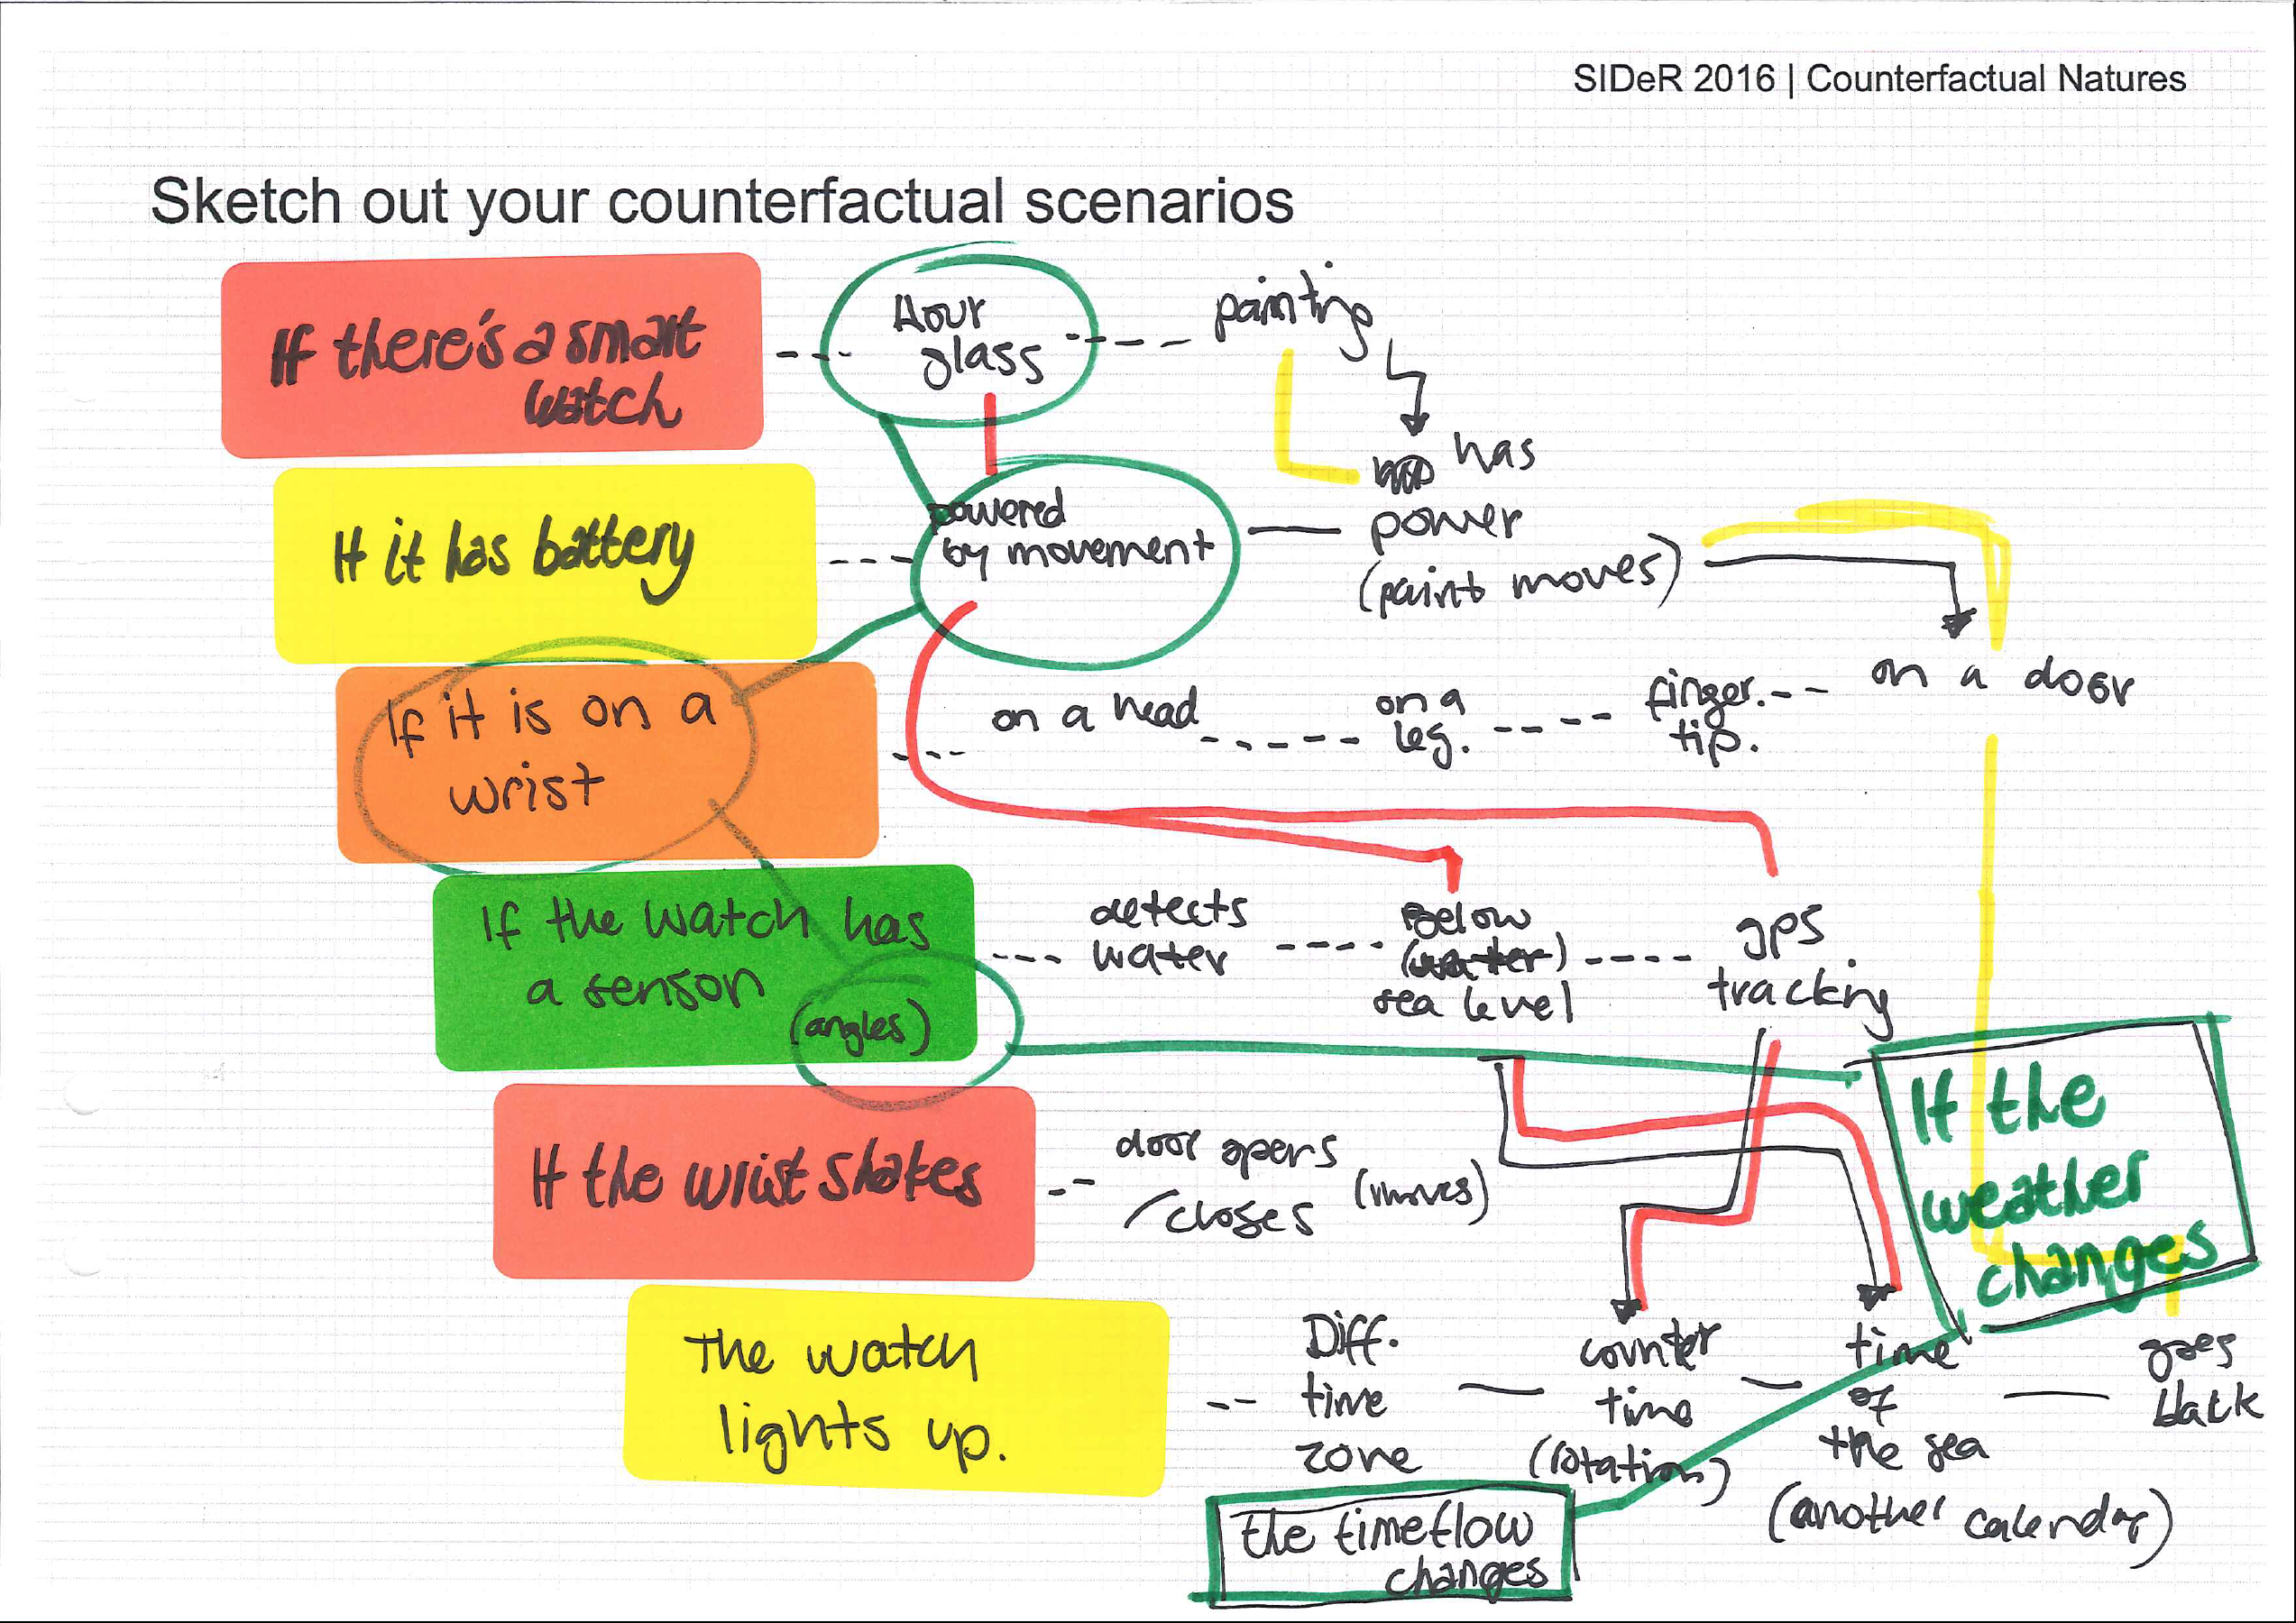 SIDeR 2016 | Counterfactual Natures
Sketch out your counterfactual scenarios
If there's a smart
watch
Hour
glass
painting
If it has battery
powered
by movement
has
power
(paint moves)
If it is on a
wrist
on a head
on a
leg.
finger.
tip.
on a door
If the watch has
a sensor
(angles)
detects
water
Below
(water)
sea level
gps
tracking
If the wrist shakes
door opens
/closes
(moves)
If the
weather
changes
The watch
lights up.
Diff.
time
zone
counter
time
(rotation)
time
of
the sea
(another calendar)
goes
back
the timeflow
changes